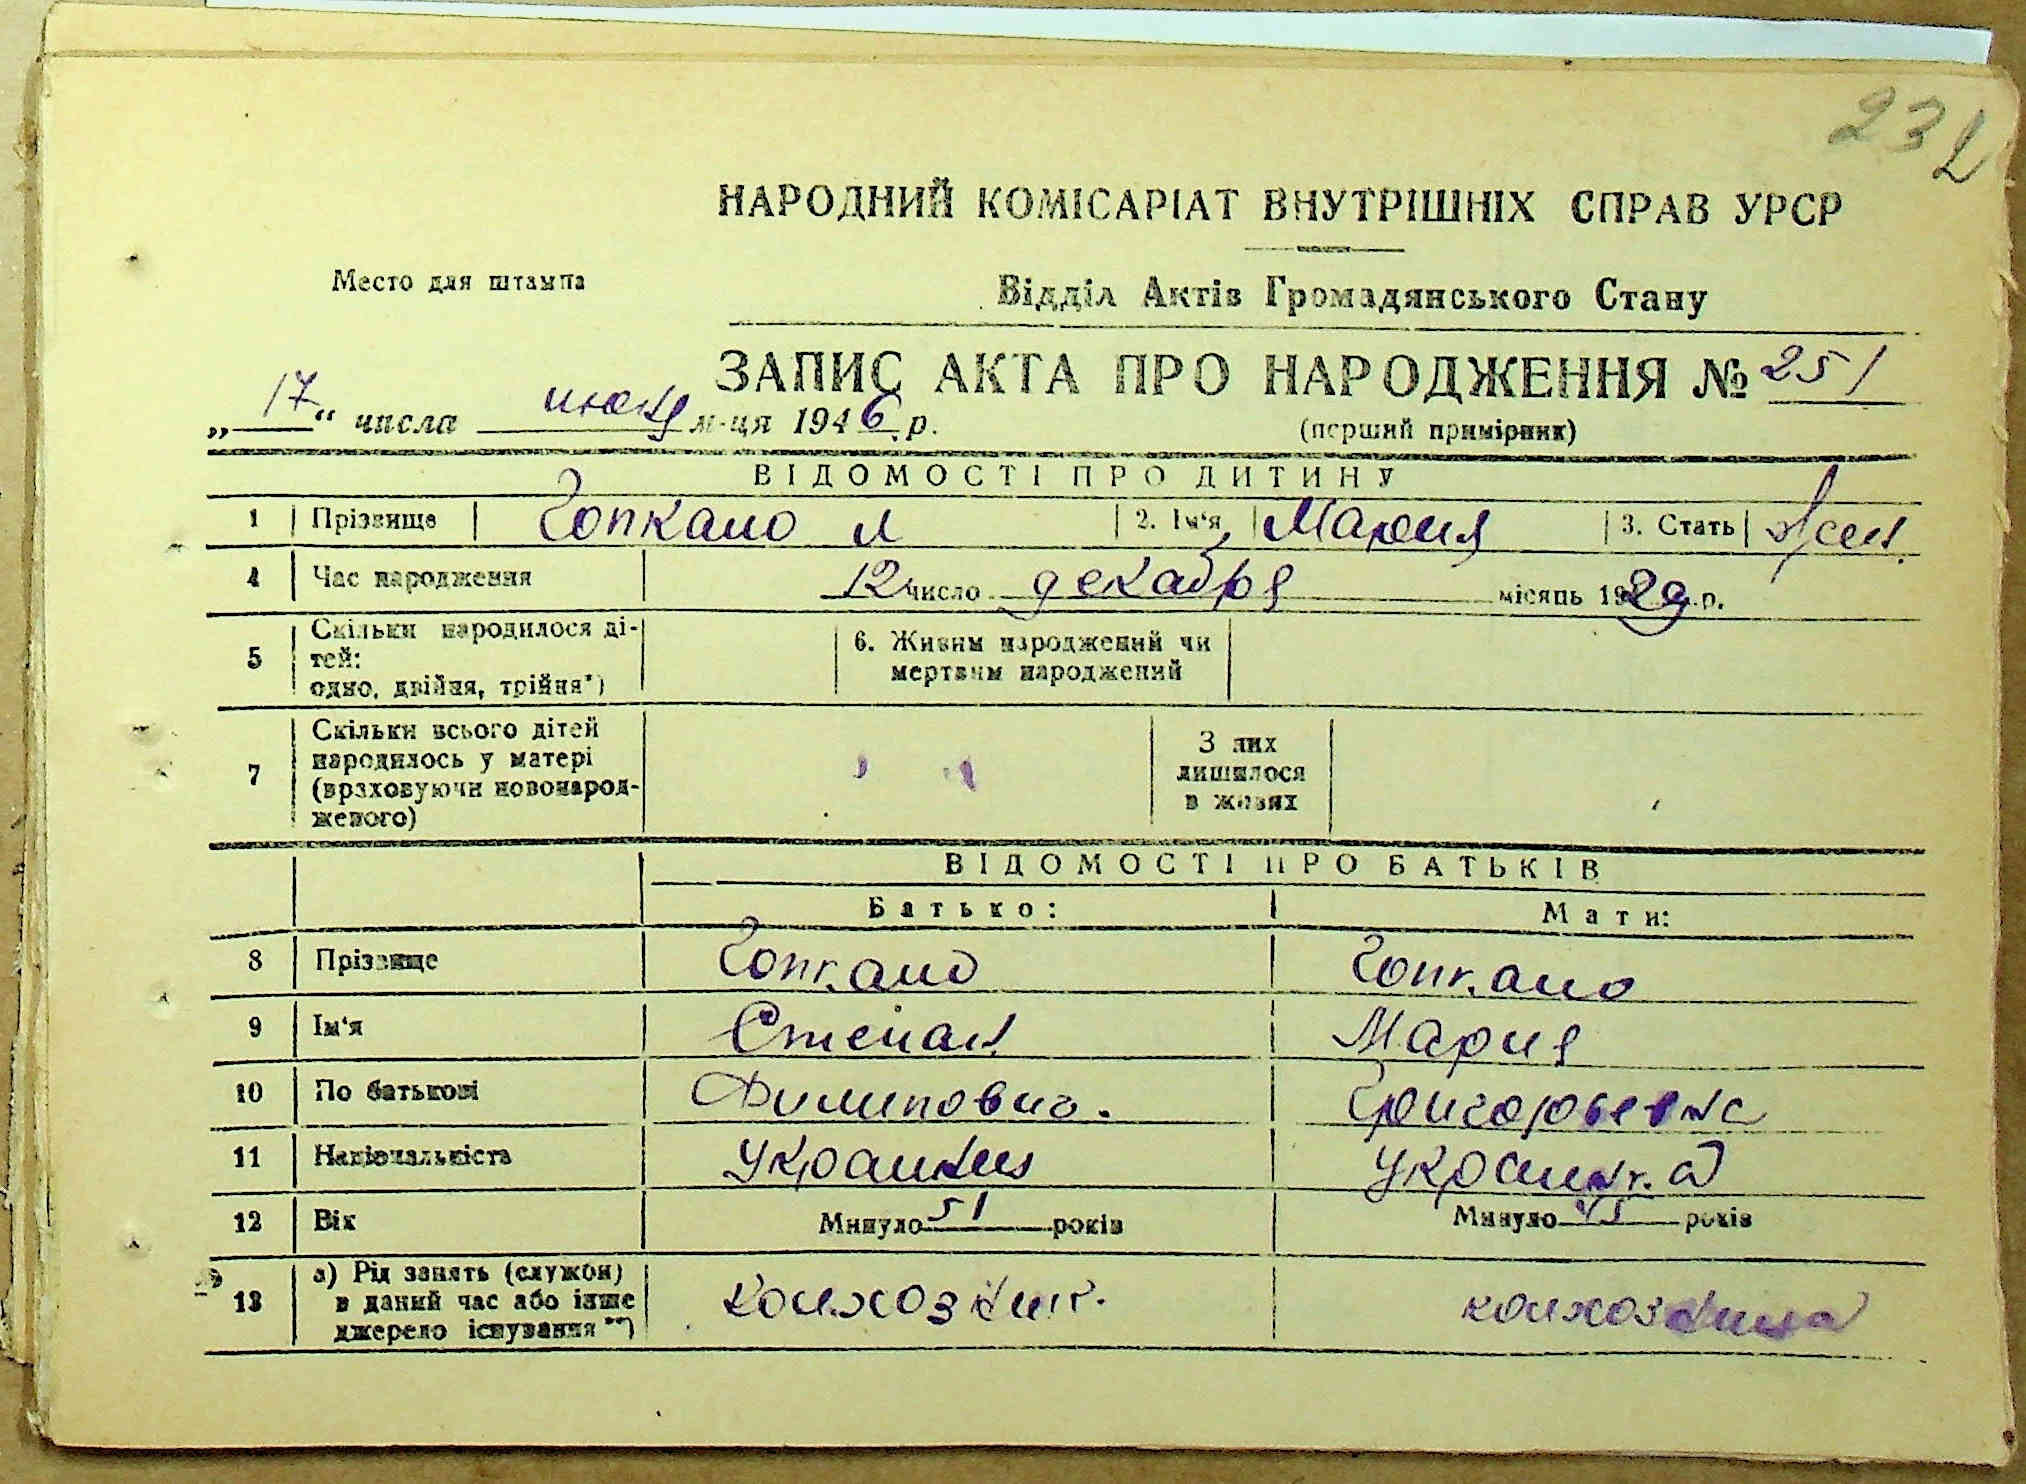 232
НАРОДНИЙ КОМІСАРІАТ ВНУТРІШНІХ СПРАВ УРСР
Место для штампа
Відділ Актів Громадянського Стану
ЗАПИС АКТА ПРО НАРОДЖЕННЯ № 251
„17“ числа м-ця 1946 р.
(перший примірник)
ВІДОМОСТІ ПРО ДИТИНУ
1 Прізвище 2. Ім‘я Мария 3. Стать жен.
4 Час народження 12 число декабря місяць 1929 р.
5 Скільки народилося ді-
тей:
одно, двійня, трійня*)
6. Живим народжений чи
мертвим народжений
7 Скільки всього дітей
народилось у матері
(враховуючи новонарод-
женого)
З них
лишилося
в живих
ВІДОМОСТІ ПРО БАТЬКІВ
Батько: Мати:
8 Прізвище
9 Ім‘я Степан Мария
10 По батькові Филипович. Григорьевна
11 Національність Украинец Украинка
12 Вік Минуло 51 років Минуло 45 років
13 а) Рід занять (служби)
в даний час або інше
джерело існування**)
колхозник. колхозница